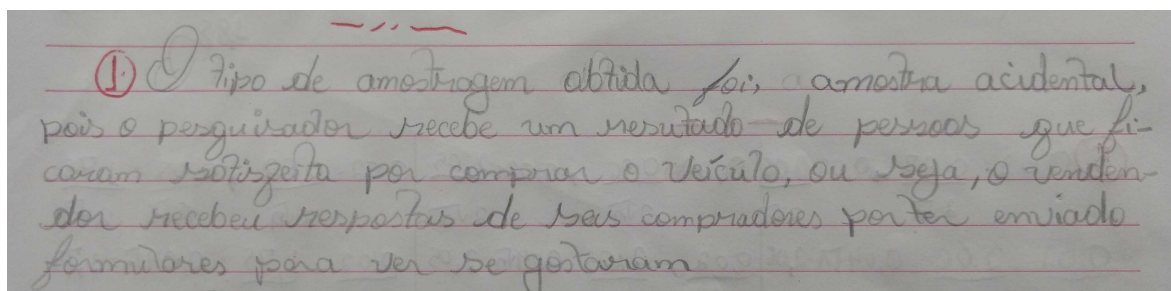 1. O tipo de amostragem obtida foi, amostra acidental,
pois o pesquisador recebe um resutado de pessoas que fi-
caram satisfeita por comprar o veículo, ou seja, o venden-
dor recebeu respostas de seus compradores por ter enviado
formulares para ver se gostaram